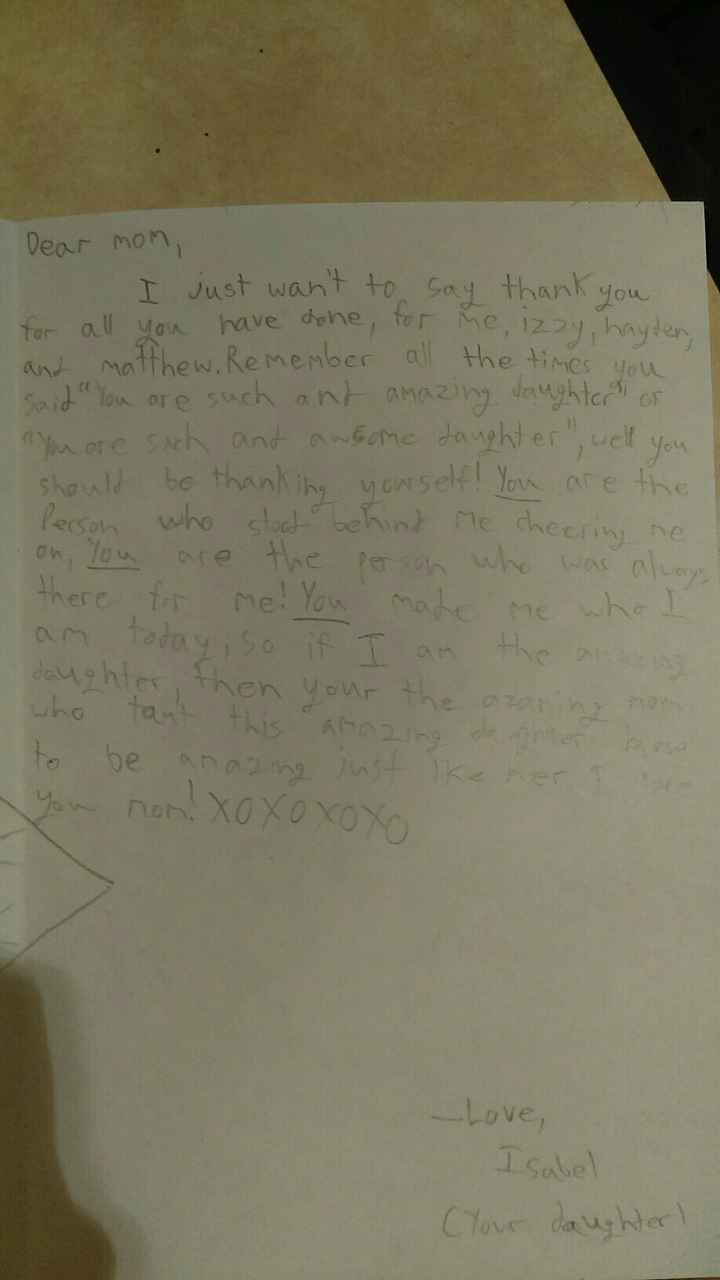 Dear mom,
I just wan't to say thank you
for all you have done, for me, izzy, hayden,
and matthew. Remember all the times you
said "You are such and amazing daughter" or
"You are such and awsome daughter", well you
should be thanking yourself! You are the
Person who stood behind me cheering me
on, You are the person who was always
there for me! You made me who I
am today, so if I am the amazing
daughter, then your the amazing mom
who taut this amazing daughter how
to be amazing just like her I love
you mom! XOXOXOXO
—Love,
Isabel
(Your daughter)